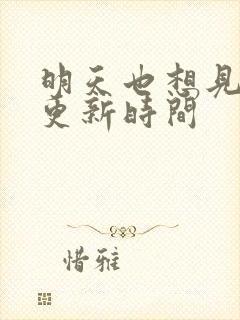 明天也想見
更新時間
惜雅